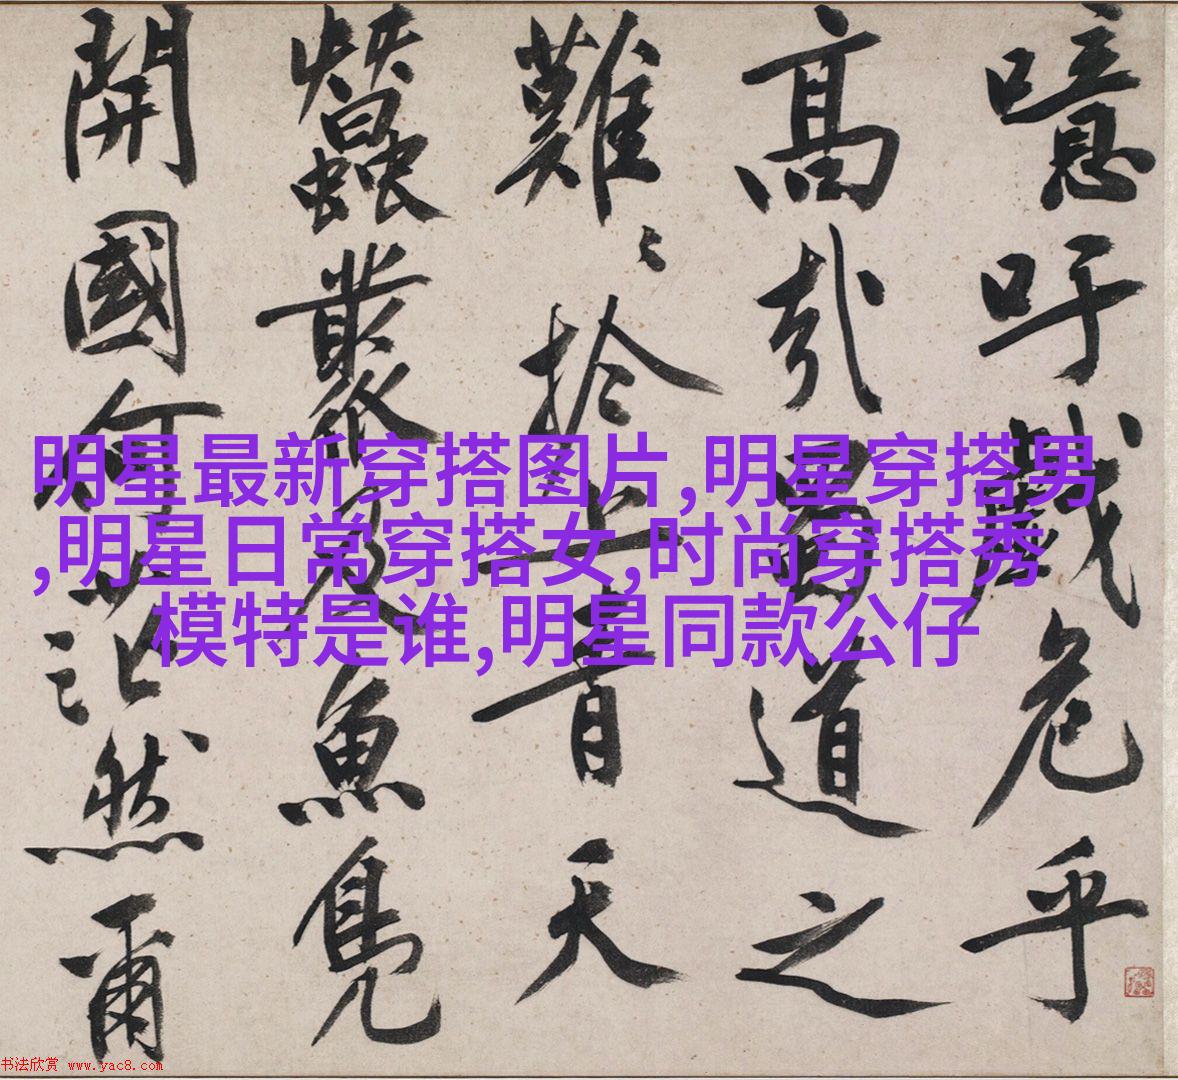 噫吁戲危乎
高哉蜀道之
難〻於上青天
蠶叢及魚鳧
開國何然爾
明星最新穿搭图片,明星穿搭男
,明星日常穿搭女,时尚穿搭秀
模特是谁,明星同款公仔
书法欣赏 www.yac8.com